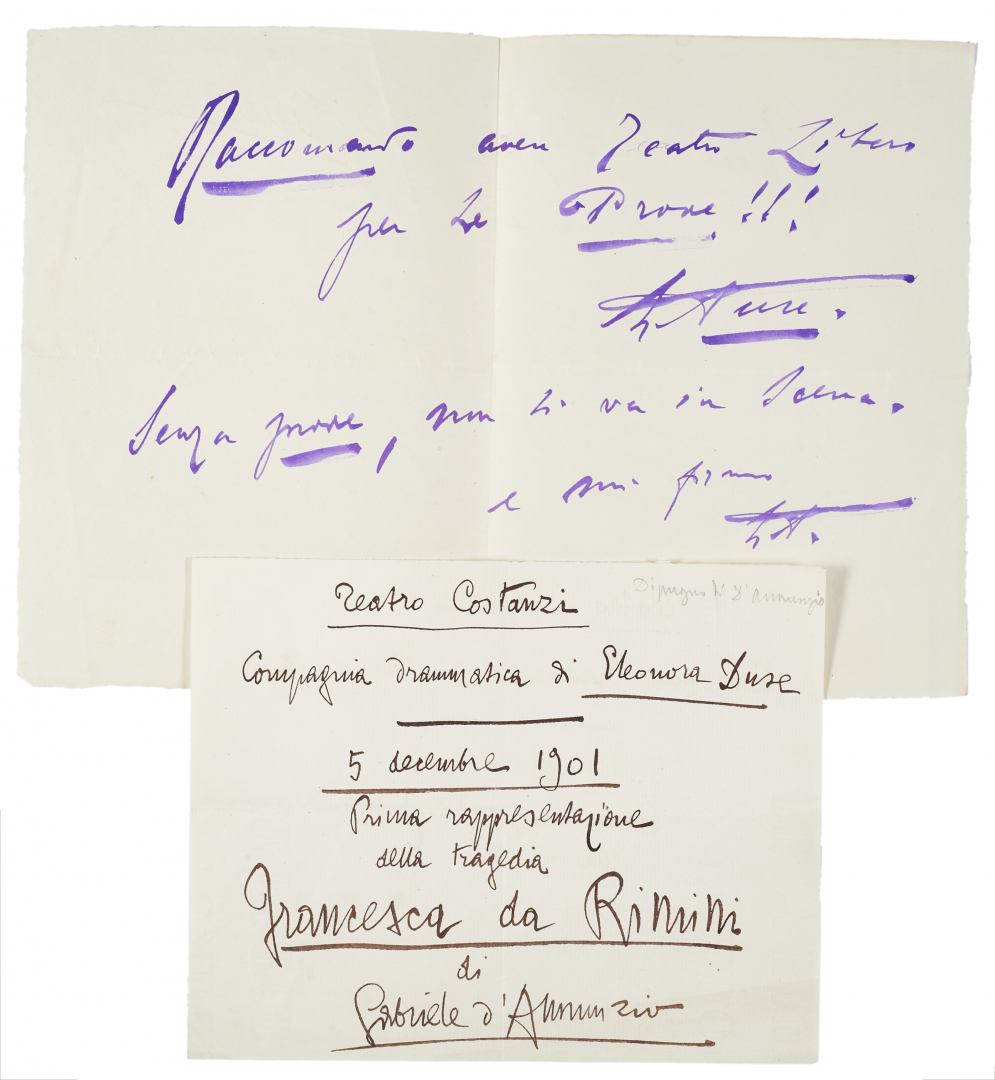 Raccomando aver Teatro Libero
per Le Prove !!!
Duse.
Senza prove, non si va in Scena.
e mi firmo
Teatro Costanzi
Di pugno di D'Annunzio
Compagnia drammatica di Eleonora Duse
5 decembre 1901
Prima rappresentazione
della tragedia
Francesca da Rimini
di
Gabriele d'Annunzio